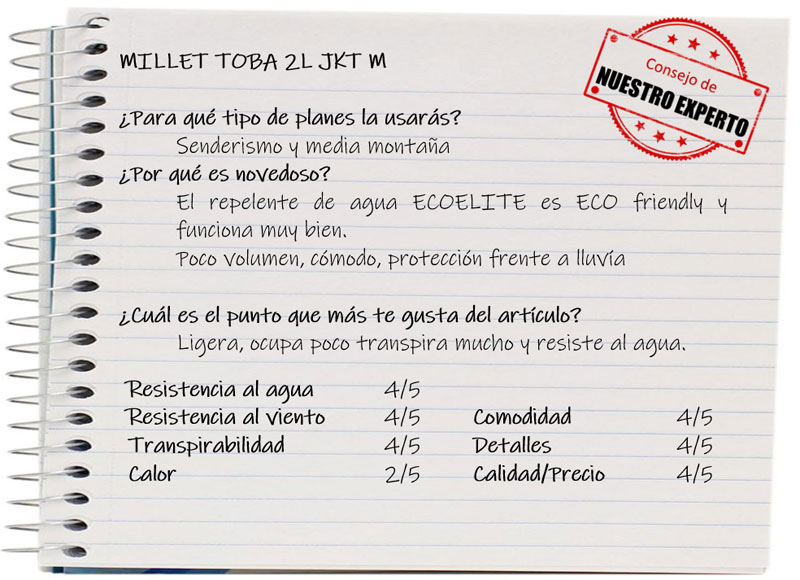 MILLET TOBA 2L JKT M
Consejo de
NUESTRO EXPERTO
¿Para qué tipo de planes la usarás?
Senderismo y media montaña
¿Por qué es novedoso?
El repelente de agua ECOELITE es ECO friendly y
funciona muy bien.
Poco volumen, cómodo, protección frente a lluvía
¿Cuál es el punto que más te gusta del artículo?
Ligera, ocupa poco transpira mucho y resiste al agua.
Resistencia al agua 4/5
Resistencia al viento 4/5 Comodidad 4/5
Transpirabilidad 4/5 Detalles 4/5
Calor 2/5 Calidad/Precio 4/5